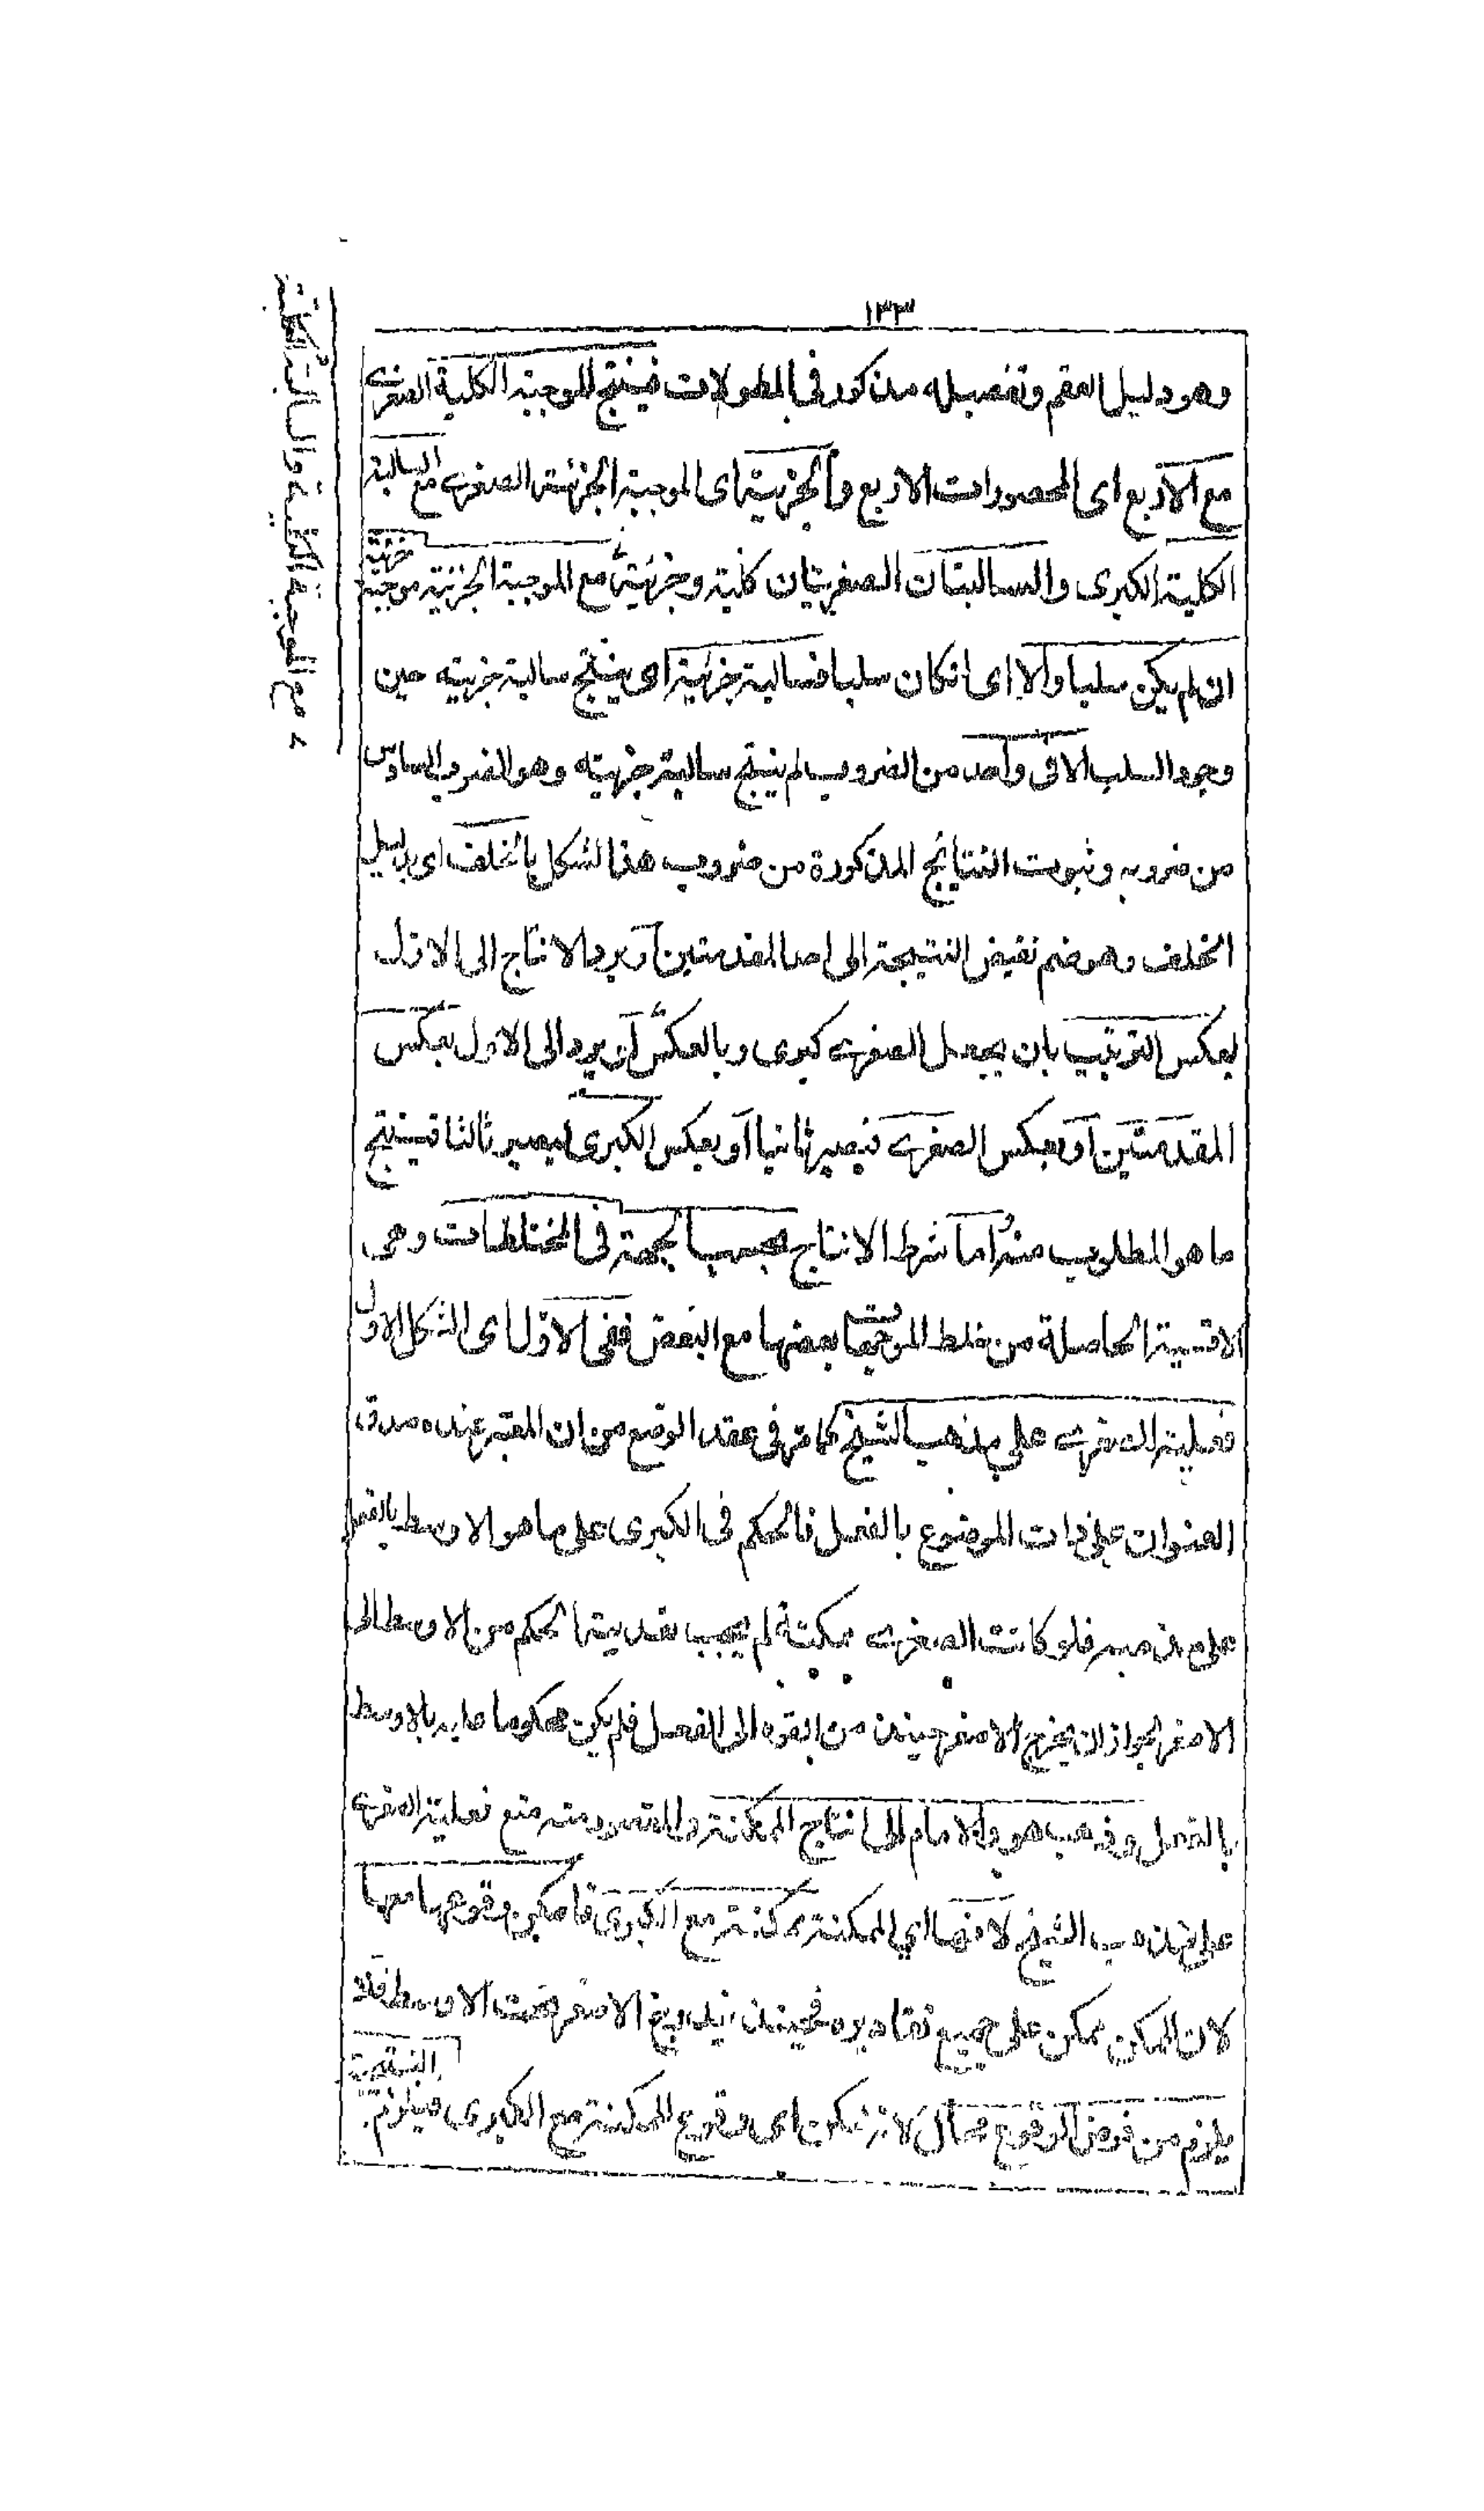 ١٣٣
وهو دليل العقم وتفصيله مذكور فى المطولات فينتج الموجبة الكلية الصغرى
مع الاربع اى المحصورات الاربع والجزئية اى الموجبة الجزئية الصغرى مع السالبة
الكلية الكبرى والسالبتان الصغريتان كلية وجزئية مع الموجبة الجزئية موجبة جزئية
ان لم يكن سلبا والا اى انكان سلبا فسالبة جزئية اى ينتج سالبة جزئيه حين
وجود السلب الا فى واحد من الضروب لم ينتج سالبة جزئيته وهو الضرب السادس
من ضروبه وثبوت النتايج المذكورة من ضروب هذا الشكل بالخلف اى بدليل
الخلف وهو ضم نقيض النتيجة الى احد المقدمتين او برد الانتاج الى الاول
بعكس الترتيب بان يجعل الصغرى كبرى وبالعكس او يرد الى الاول بعكس
المقدمتين او بعكس الصغرى فيصير ثانيا او بعكس الكبرى ليصير ثالثا فينتج
ما هو المطلوب منه اما شرط الانتاج بحسب الجهة فى المختلطات وهى
الاقيسة الحاصلة من خلط الموجهات بعضها مع البعض ففى الاول اى الشكل الاول
فعلية الصغرى على مذهب الشيخ كما مر فى عقد الوضع من ان المعتبر عنده صدق
العنوان على ذات الموضوع بالفعل فالحكم فى الكبرى على ما هو الاوسط بالفعل
على مذهبه فلو كانت الصغرى ممكنة لم يجب تعدية الحكم من الاوسط الى
الاصغر لجواز ان يخرج الاصغر حينئذ من القوه الى الفعل فلم يكن محكوما عليه بالاوسط
بالفعل وذهب هو والامام الى انتاج الممكنة والمقصود منه منع فعلية الصغرى
على مذهب الشيخ لانها اي الممكنة ممكنة مع الكبرى فامكن وقوعها معها
لان الممكن ممكن على جميع تقاديره فحينئذ يندرج الاصغر تحت الاوسط فلا
يلزم من فرض الوقوع محال لانه ممكن اى وقوع الممكنة مع الكبرى فيلزم النتيجة
مع الموجبة الكلية والسالبة الكلية